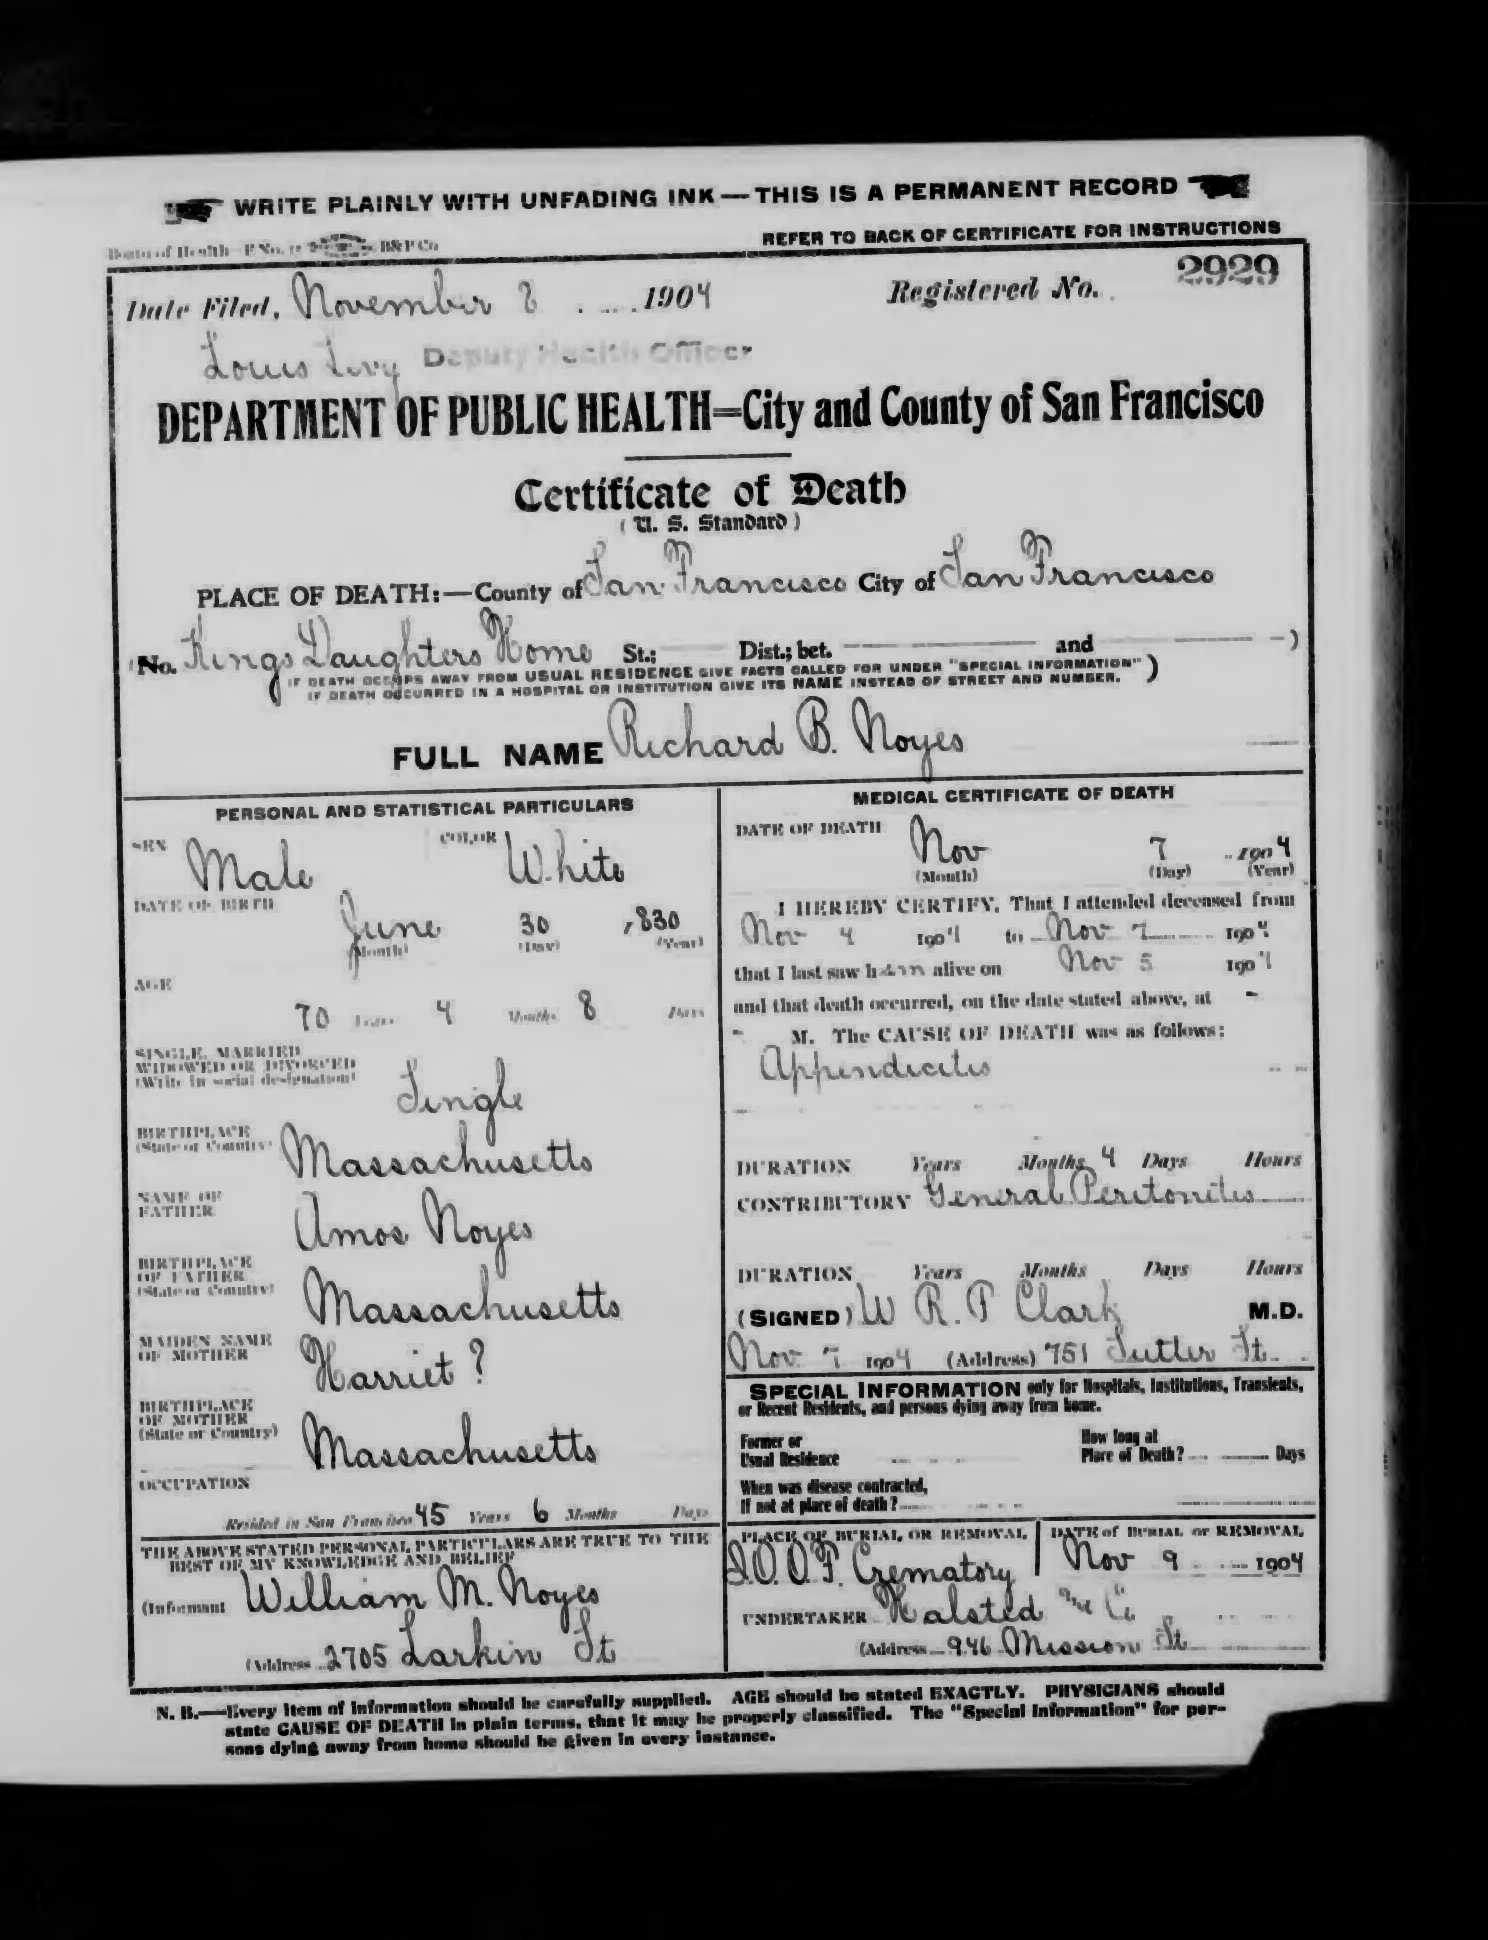 WRITE PLAINLY WITH UNFADING INK — THIS IS A PERMANENT RECORD
Board of Health B&P Co
REFER TO BACK OF CERTIFICATE FOR INSTRUCTIONS
Date Filed, November 8 1904 Registered No. 2929
Louis Levy Deputy Health Officer
DEPARTMENT OF PUBLIC HEALTH=City and County of San Francisco
Certificate of Death
(U. S. Standard)
PLACE OF DEATH:—County of San Francisco City of San Francisco
(No. Kings Daughters Home St.; Dist.; bet. and )
(IF DEATH OCCURS AWAY FROM USUAL RESIDENCE GIVE FACTS CALLED FOR UNDER "SPECIAL INFORMATION"
IF DEATH OCCURRED IN A HOSPITAL OR INSTITUTION GIVE ITS NAME INSTEAD OF STREET AND NUMBER.)
FULL NAME Richard B. Noyes
PERSONAL AND STATISTICAL PARTICULARS
SEX Male COLOR White
DATE OF BIRTH June 30 , 830
(Month) (Day) (Year)
AGE
70 Years 4 Months 8 Days
SINGLE, MARRIED
WIDOWED OR DIVORCED
(Write in social designation)
Single
BIRTHPLACE
(State or Country) Massachusetts
NAME OF
FATHER Amos Noyes
BIRTHPLACE
OF FATHER
(State or Country) Massachusetts
MAIDEN NAME
OF MOTHER Harriet ?
BIRTHPLACE
OF MOTHER
(State or Country) Massachusetts
OCCUPATION
Resided in San Francisco 45 Years 6 Months Days
THE ABOVE STATED PERSONAL PARTICULARS ARE TRUE TO THE
BEST OF MY KNOWLEDGE AND BELIEF
(Informant William M. Noyes
(Address 2705 Larkin St
MEDICAL CERTIFICATE OF DEATH
DATE OF DEATH Nov 7 1904
(Month) (Day) (Year)
I HEREBY CERTIFY, That I attended deceased from
Nov 4 1904 to Nov 7 1904
that I last saw him alive on Nov 5 1904
and that death occurred, on the date stated above, at -
- M. The CAUSE OF DEATH was as follows:
Appendicitis
DURATION Years Months 4 Days Hours
CONTRIBUTORY General Peritonitis
DURATION Years Months Days Hours
(SIGNED) W R. P Clark M.D.
Nov 7 1904 (Address) 751 Sutter St.
SPECIAL INFORMATION only for Hospitals, Institutions, Transients,
or Recent Residents, and persons dying away from home.
Former or
Usual Residence
How long at
Place of Death? Days
When was disease contracted,
If not at place of death?
PLACE OF BURIAL OR REMOVAL DATE of BURIAL or REMOVAL
I.O.O.F. Crematory Nov 9 1904
UNDERTAKER Halsted and Co
(Address 946 Mission St
N. B.—Every item of information should be carefully supplied. AGE should be stated EXACTLY. PHYSICIANS should
state CAUSE OF DEATH in plain terms, that it may be properly classified. The "Special Information" for per-
sons dying away from home should be given in every instance.